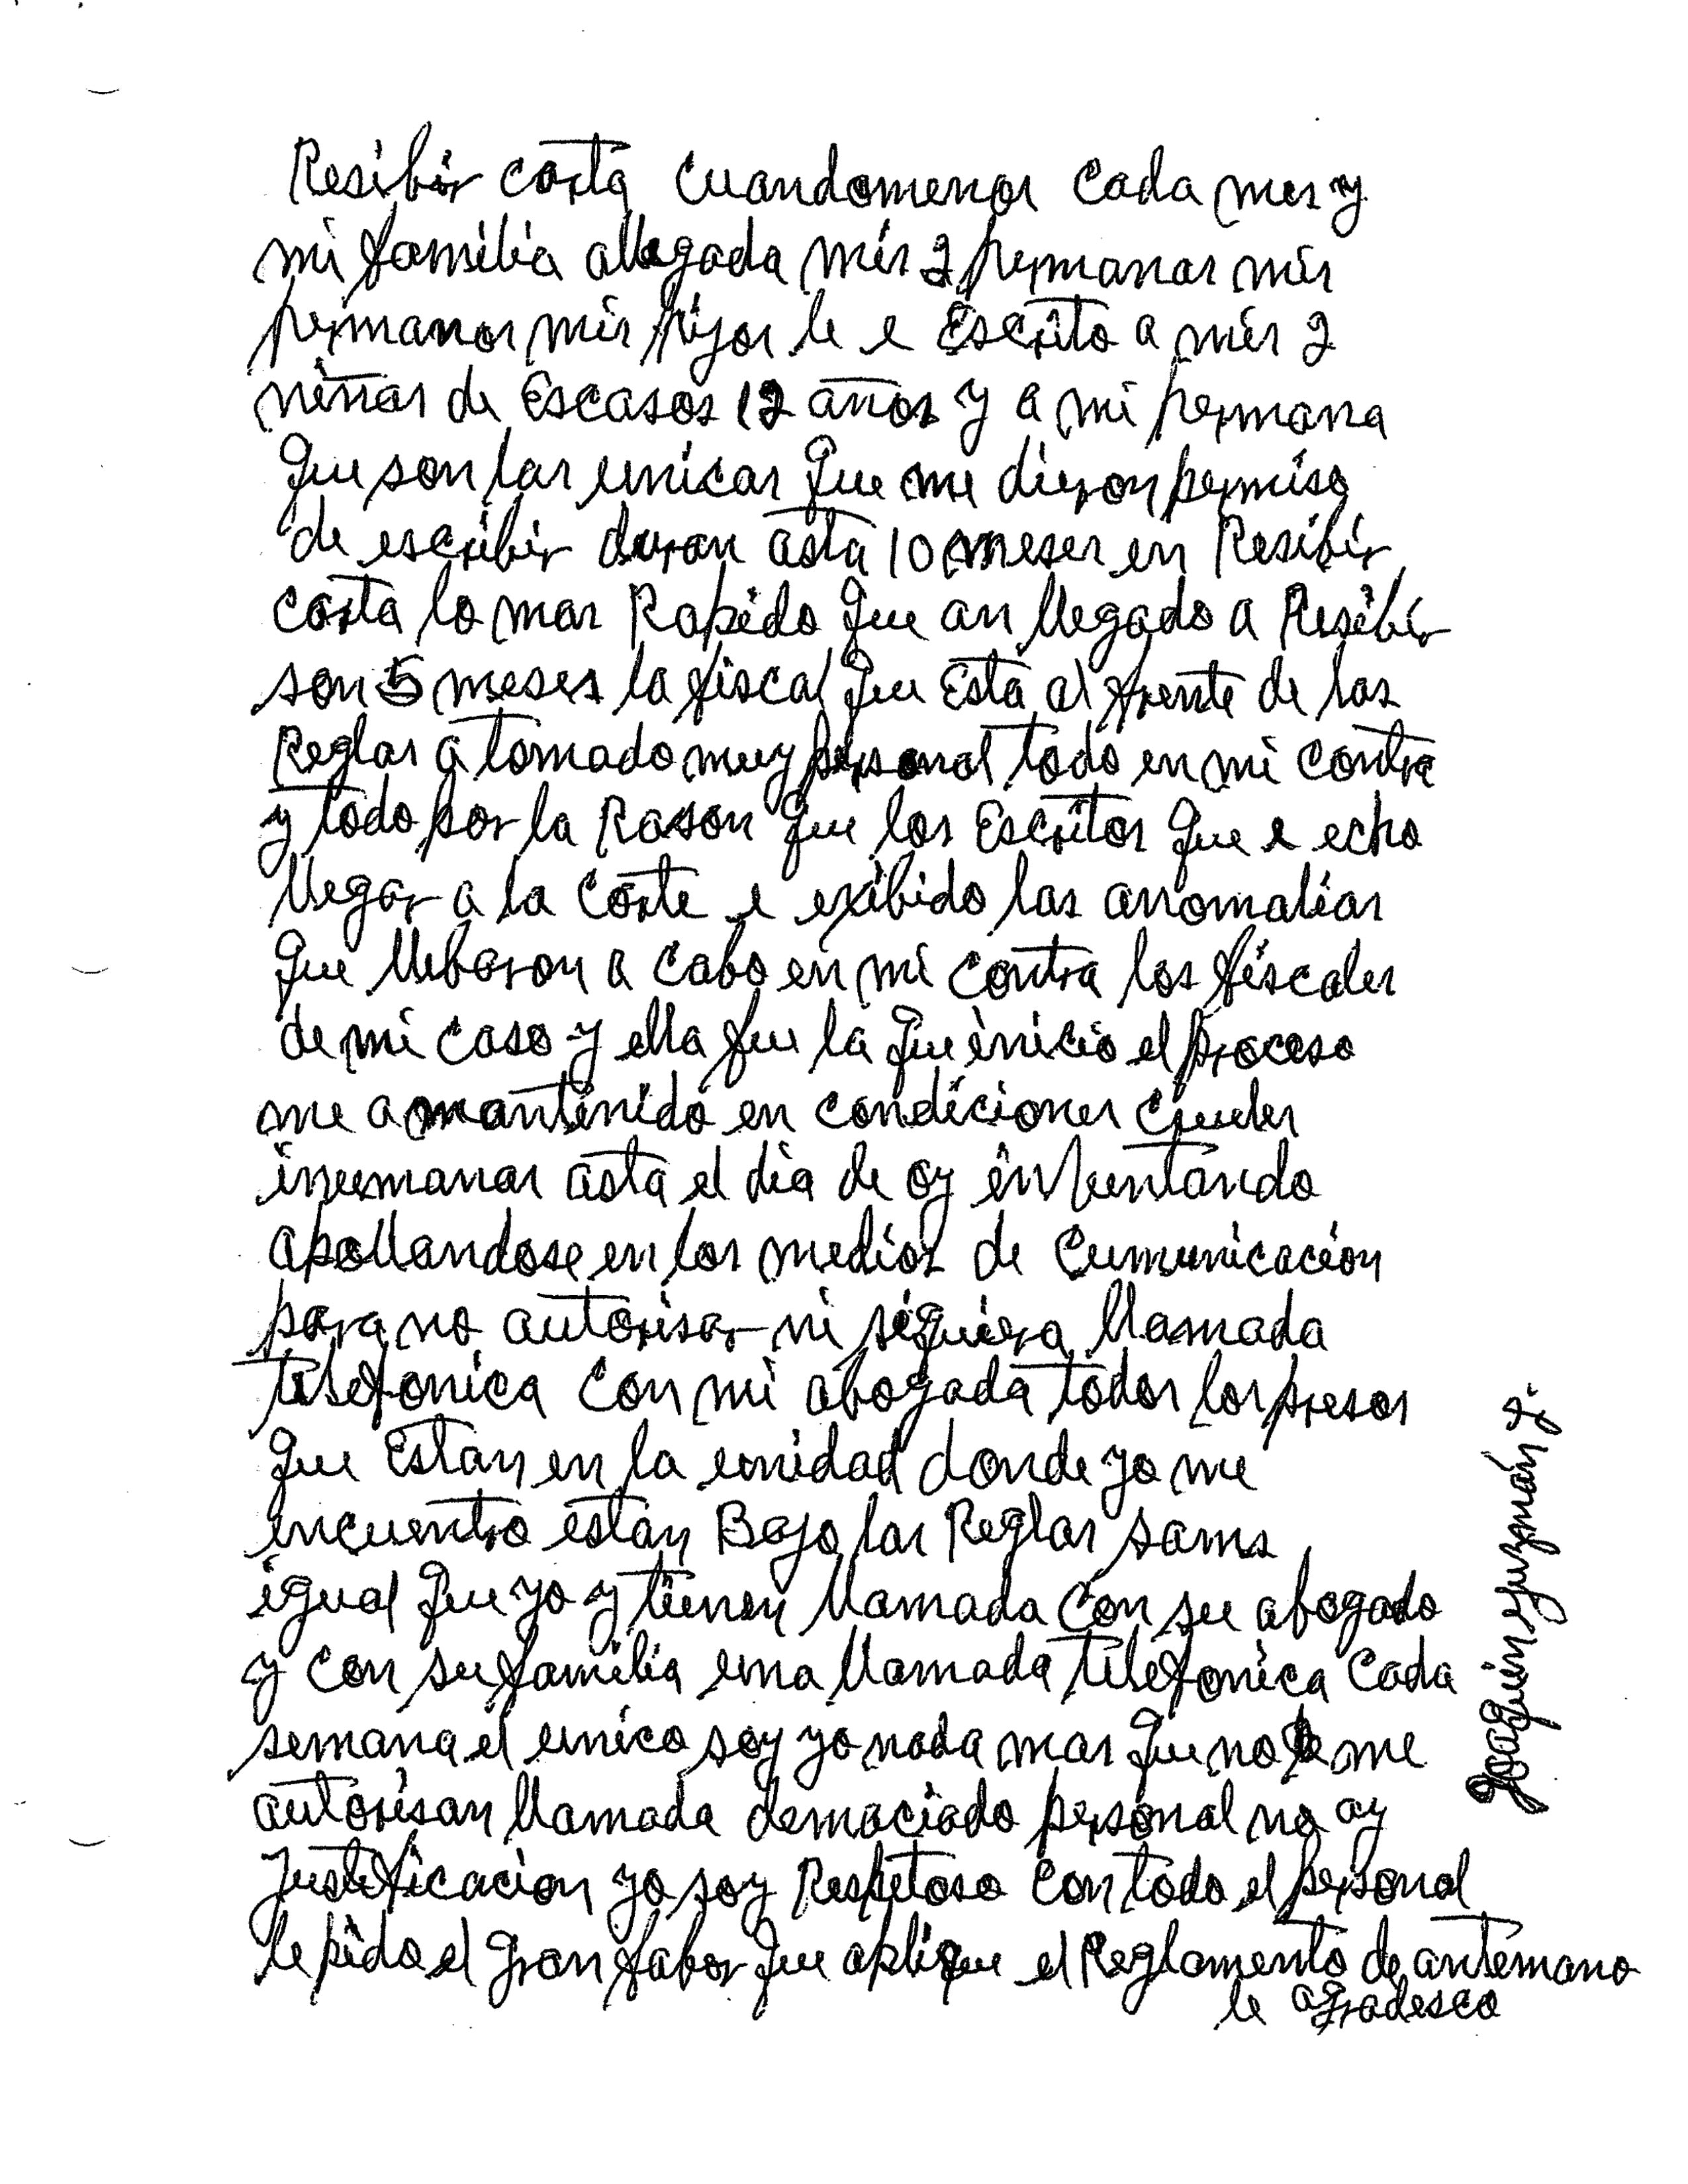 Resibir carta cuandomenos cada mes y
mi familia allegada mis 2 hermanas mis
hermanos mis hijos le e Escrito a mis 2
niñas de Escasos 12 años y a mi hermana
que son las unicas que me dieron permiso
de escribir duran asta 10 meses en Resibir
carta lo mas Rapido que an llegado a Resibir
son 5 meses la fiscal que Esta al frente de las
Reglas a tomado muy personal todo en mi contra
y todo por la Rason que los Escritos que e echo
llegar a la corte e exibido las anomalias
que llebaron a cabo en mi contra los fiscales
de mi caso y ella fue la que inicio el proceso
me a mantinido en condiciones crueles
inumanas asta el dia de oy inbentando
apollandose en los medios de cumunicacion
para no autorisar ni siquiera llamada
telefonica con mi abogada todos los presos
que Estan en la unidad donde yo me
encuentro estan Bajo las Reglas sams
igual que yo y tienen llamada con su abogado
y con su familia una llamada telefonica cada
semana el unico soy yo nada mas que no me
autorisan llamada demaciado personal no ay
Justificacion yo soy Respetoso con todo el personal
le pido el gran fabor que aplique el Reglamento de antemano
le agradesco
Joaquin guzmán L.